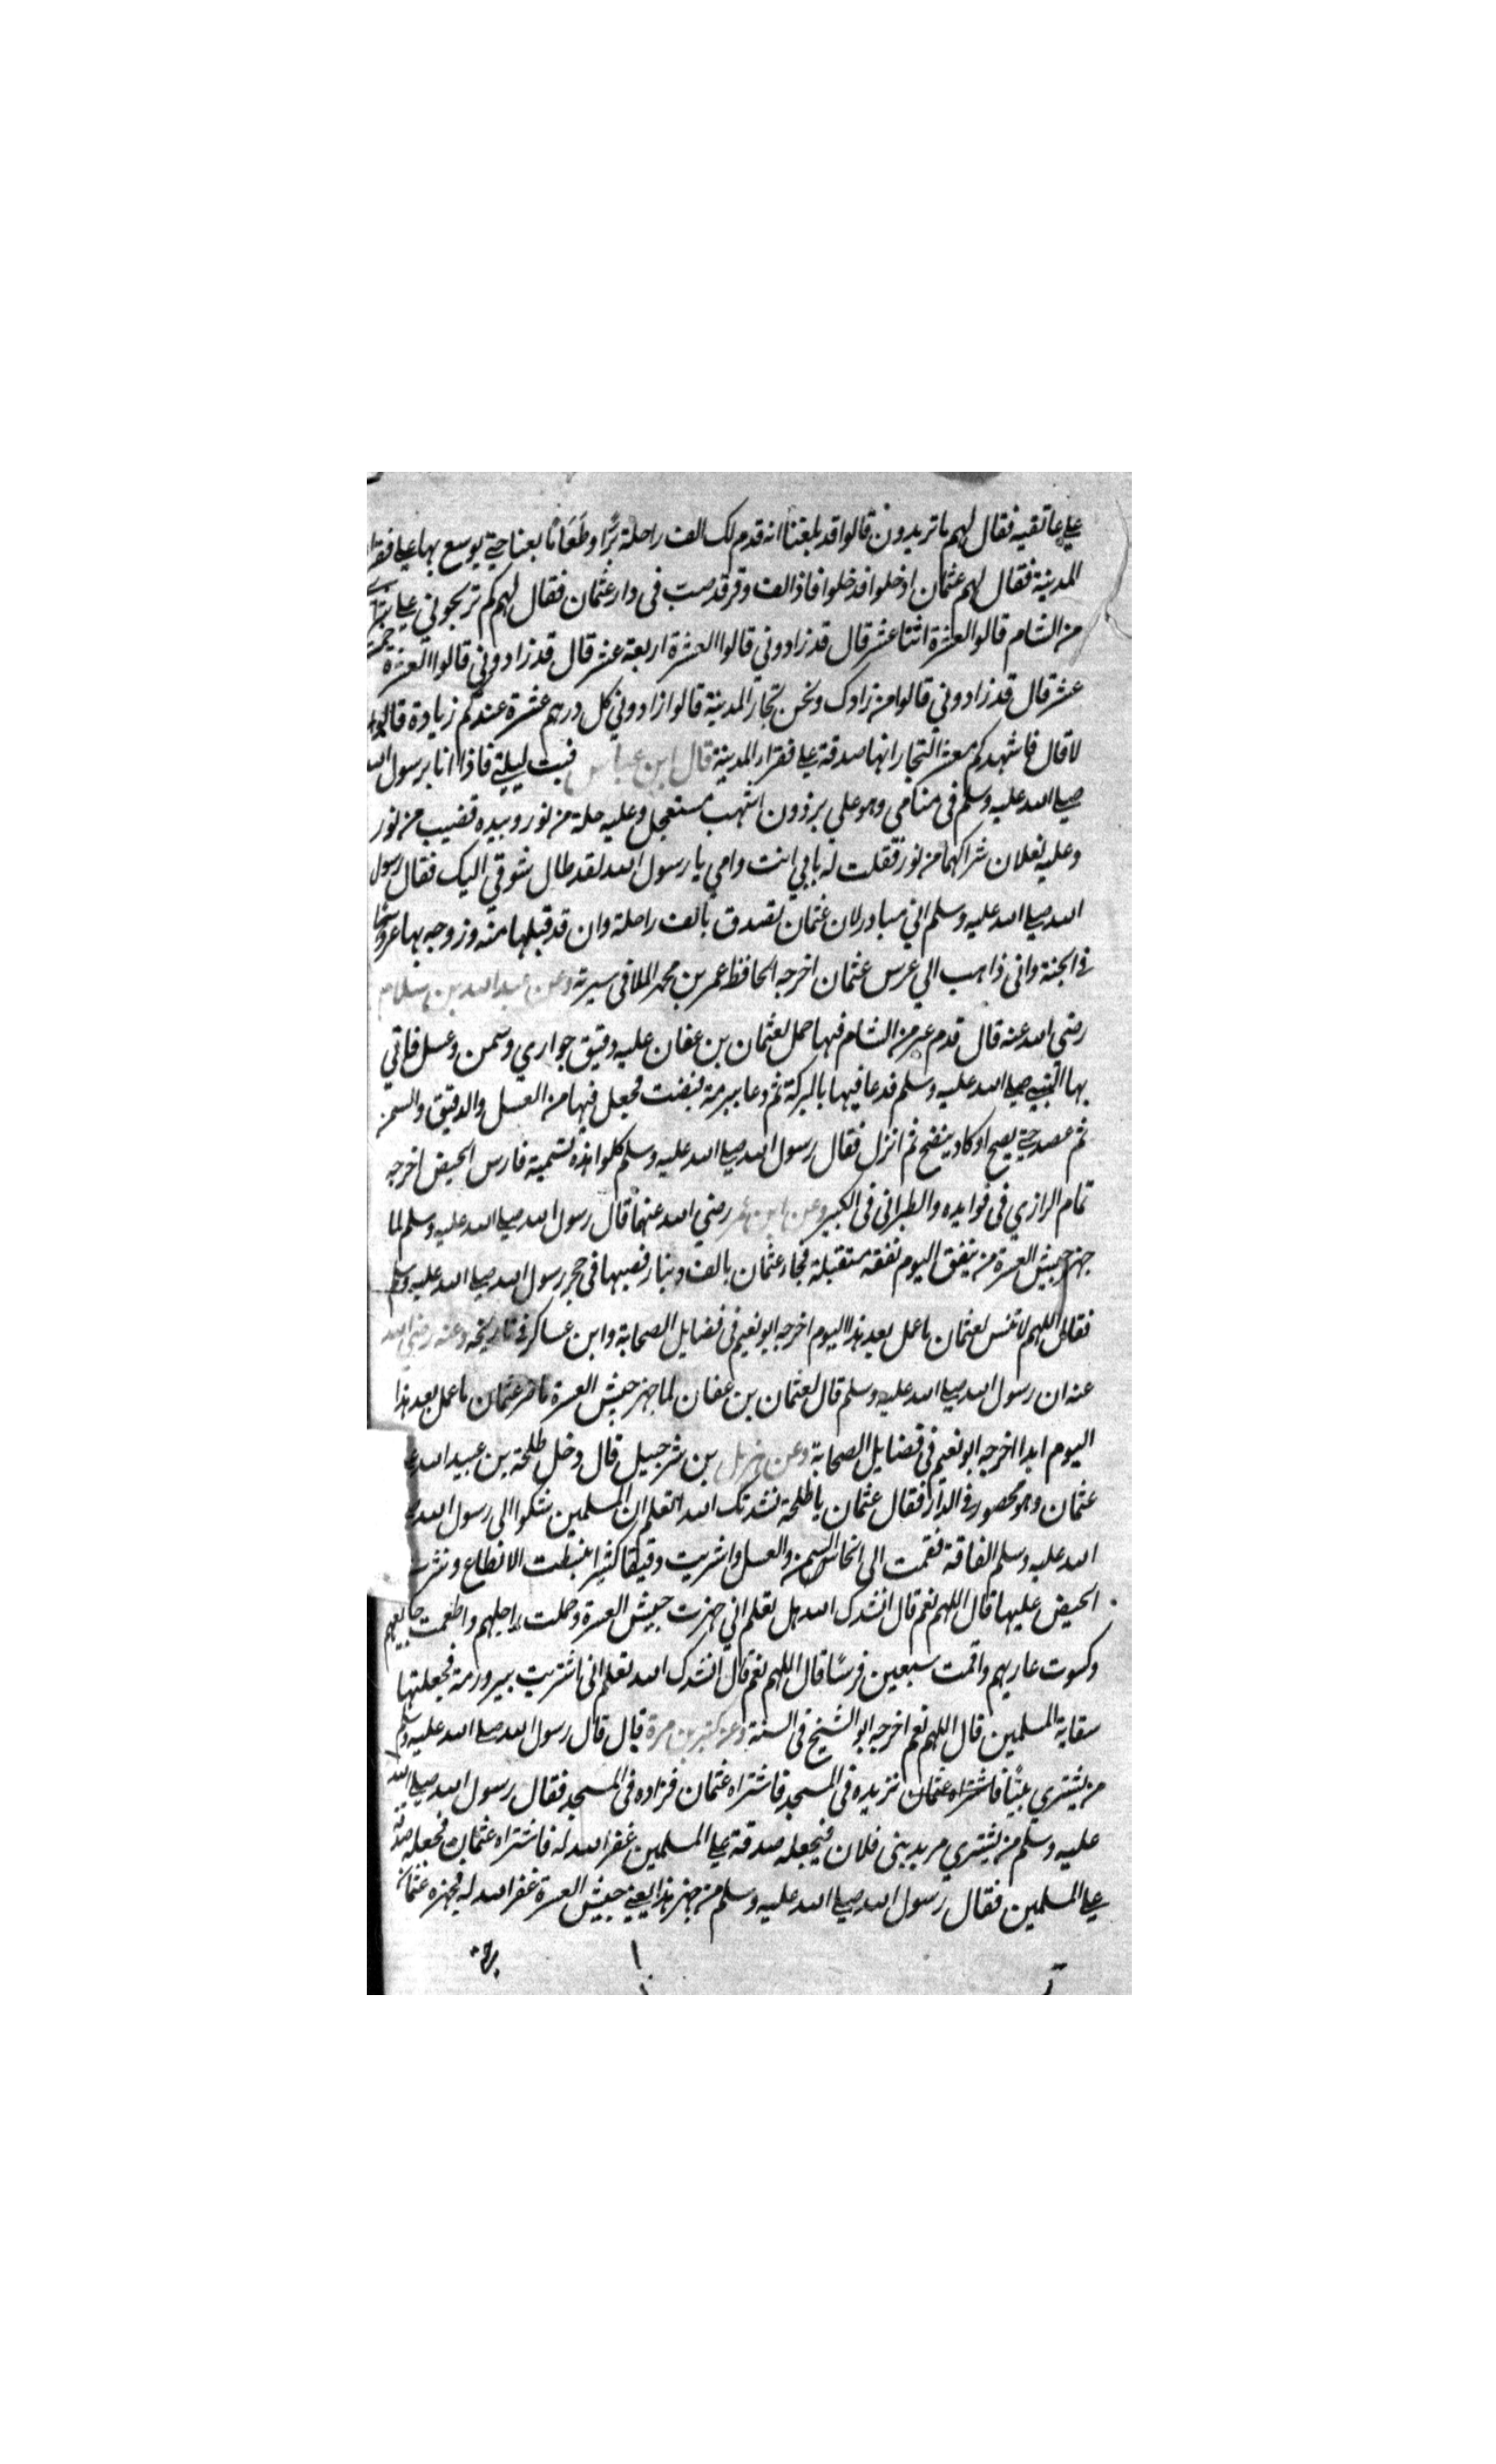 علي عاتقيه فقال لهم ما تريدون قالوا قد بلغنا انه قدم لك الف راحلة بُرًّا وطَعَامًا بعنا حتي يوسع بها علي فقرا
المدينة فقال لهم عثمان ادخلوا فدخلوا فاذا الف وقر قد صبت في دار عثمان فقال لهم كم تربحوني علي
من الشام قالوا العشرة اثنا عشر قال قد زادوني قالوا العشرة اربعة عشر قال قد زادوني قالوا العشرة خمسة
عشر قال قد زادوني قالوا من زادك ونحن تجار المدينة قالوا زادوني كل درهم عشرة عندكم زيادة قالوا
لا قال فاشهدكم معشر التجار انها صدقة علي فقراء المدينة قال ابن عباس فبت ليلتي فاذا انا برسول الله
صلي الله عليه وسلم في منامي وهو علي برذون اشهب مستعجل وعليه حلة من نور وبيده قضيب من نور
وعليه نعلان شراكهما من نور فقلت له بابي انت وامي يا رسول الله لقد طال شوقي اليك فقال رسول
الله صلي الله عليه وسلم اني مبادر لان عثمان تصدق بالف راحلة وان قد قبلها منه وزوجه بها عروسا
في الجنة واني ذاهب الي عرس عثمان اخرجه الحافظ عمر بن محمد الملا في سيرته وعن عبد الله بن سلام
رضي الله عنه قال قدم عير من الشام فيها حمل لعثمان بن عفان عليه دقيق حواري وسمن وعسل فاتي
بها النبي صلي الله عليه وسلم فدعا فيها بالبركة ثم دعا ببرمة فنصبت فجعل فيها من العسل والدقيق والسمن
ثم عصد حتي يصح او كاد ينضج ثم انزل فقال رسول الله صلي الله عليه وسلم كلوا هذه تسمية فارس الخبيص اخرجه
تمام الرازي في فوايده والطبراني في الكبير وعن ابن عمر رضي الله عنهما قال قال رسول الله صلي الله عليه وسلم لما
جهز جيش العسرة من ينفق اليوم نفقه متقبلة فجاء عثمان بالف دينار فصبها في حجر رسول الله صلي الله عليه وسلم
فقال اللهم لا تنس لعثمان ما عمل بعد هذا اليوم اخرجه ابو نعيم في فضايل الصحابة وابن عساكر في تاريخه وعنه رضي الله
عنه ان رسول الله صلي الله عليه وسلم قال لعثمان بن عفان لما جهز جيش العسرة ما ضر عثمان ما عمل بعد هذا
اليوم ابدا اخرجه ابو نعيم في فضايل الصحابة وعن هزيل بن شرحبيل قال دخل طلحة بن عبيد الله
عثمان وهو محصور في الدار فقال عثمان يا طلحة نشدتك الله اتعلم ان المسلمين شكوا الي رسول الله
الله عليه وسلم الفاقة فقمت الي انحاس السمن والعسل واشتريت دقيقا كثيرا فبسطت الانطاع ونثرت
الخبيص عليها قال اللهم نعم قال انشدك الله هل تعلم اني جهزت جيش العسرة وحملت راجلهم واطعمت جايعهم
وكسوت عاريهم واقمت سبعين فرسًا قال اللهم نعم قال انشدك الله تعلم اني اشتريت بير رومة فجعلتها
سقاية المسلمين قال اللهم نعم اخرجه ابو الشيخ في السنة وعن كثير بن مرة قال قال رسول الله صلي الله عليه وسلم
من يشتري بيتًا فاشتراه عثمان نزيده في المسجد فاشتراه عثمان فزاده في المسجد فقال رسول الله صلي الله
عليه وسلم من يشتري مربد بني فلان فيجعله صدقة علي المسلمين غفر الله له فاشتراه عثمان فجعله صدقة
علي المسلمين فقال رسول الله صلي الله عليه وسلم من جهز هذا يعني جيش العسرة غفر الله له فجهزه عثمان